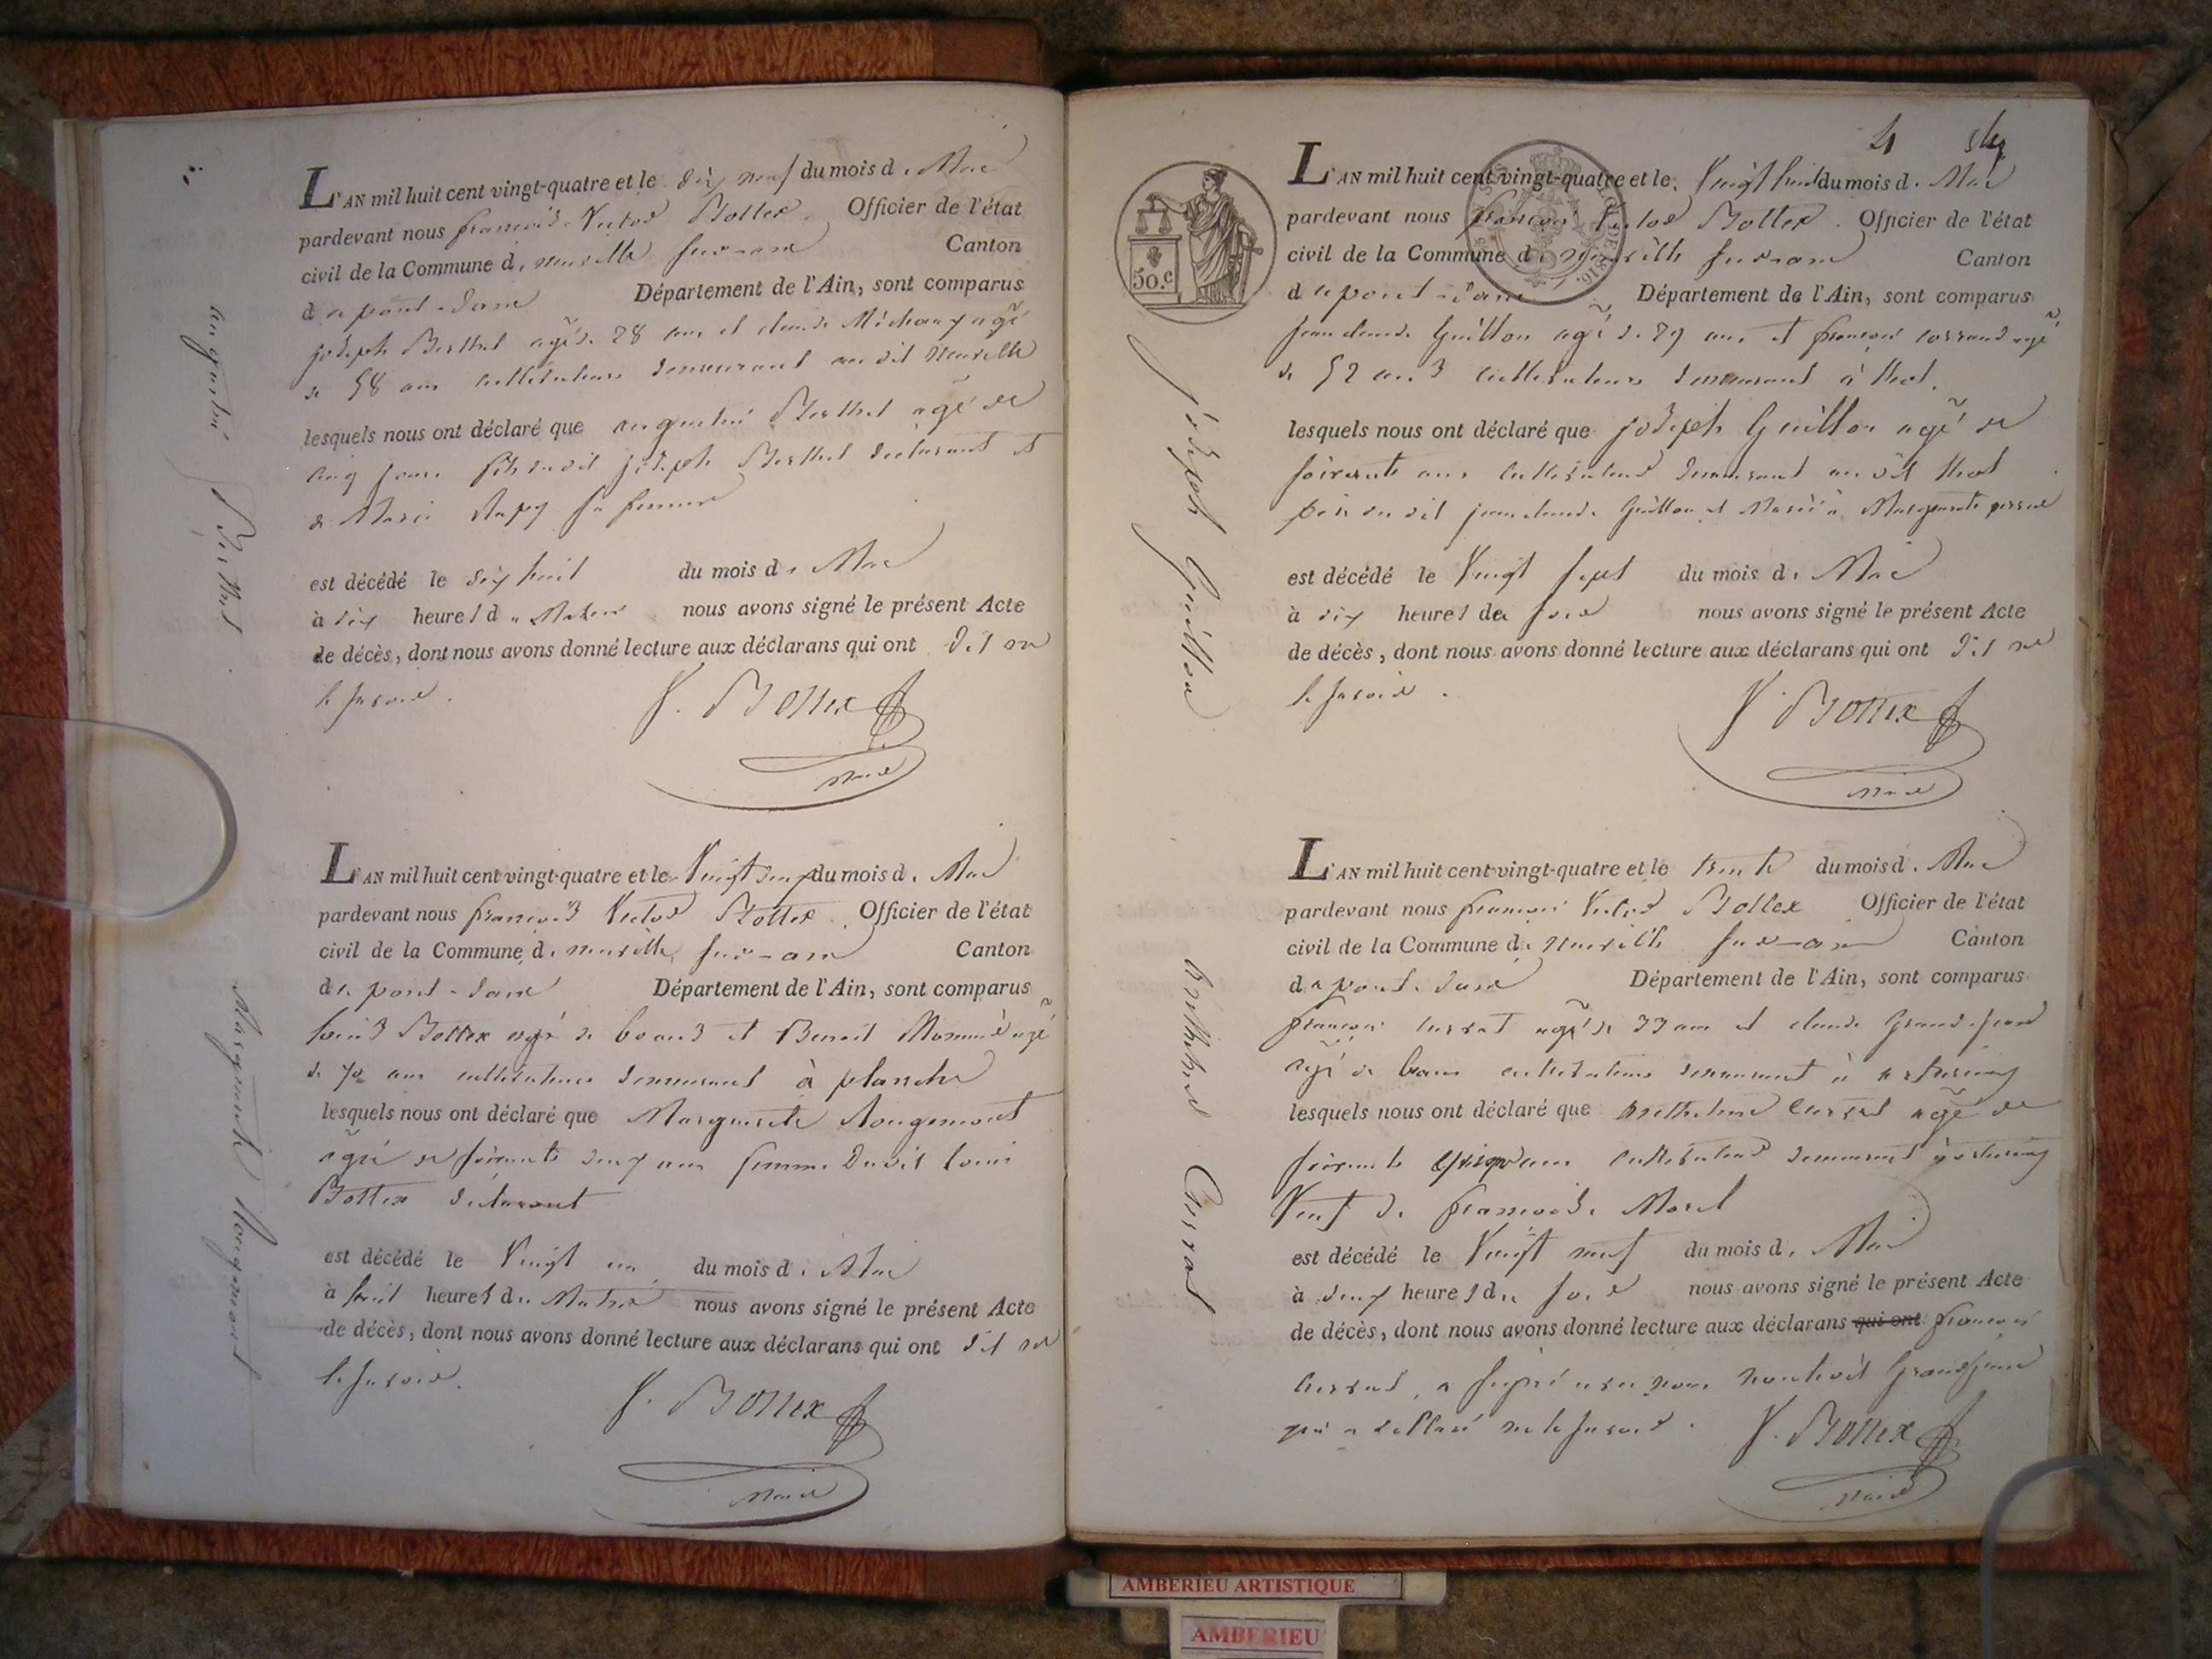 L'AN mil huit cent vingt-quatre et le dix neuf du mois de Mai
pardevant nous françois Victor Bottex Officier de l'état
civil de la Commune de neuville sur-ain Canton
de pont-dain Département de l'Ain, sont comparus
joseph Berthet agé de 28 ans et claude Michau agé
de 58 ans cultivateurs demeurant au dit Neuville
lesquels nous ont déclaré que augustin Berthet agé de
cinq jours fils dudit joseph Berthet déclarant et
de Marie sa femme
est décédé le dix huit du mois de Mai
à dix heures du Matin nous avons signé le présent Acte
de décès, dont nous avons donné lecture aux déclarans qui ont dit ne
le savoir.
V. Bottex
Maire
augustin Berthet
L'AN mil huit cent vingt-quatre et le Vingt deux du mois de Mai
pardevant nous françois Victor Bottex Officier de l'état
civil de la Commune de neuville sur-ain Canton
de pont-dain Département de l'Ain, sont comparus
louis Bottex agé de 60 ans et Benoit agé
de 70 ans cultivateurs demeurant à planche
lesquels nous ont déclaré que Marguerite Rougemont
agée de soixante deux ans femme dudit louis
Bottex déclarant
est décédé le Vingt un du mois de Mai
à huit heures du Matin nous avons signé le présent Acte
de décès, dont nous avons donné lecture aux déclarans qui ont dit ne
le savoir.
V. Bottex
Maire
Marguerite Rougemont
4
50.c
L'AN mil huit cent vingt-quatre et le Vingt huit du mois de Mai
pardevant nous françois Victor Bottex Officier de l'état
civil de la Commune de neuville sur-ain Canton
de pont-dain Département de l'Ain, sont comparus
jean claude Guillon agé de 29 ans et françois corrand agé
de 52 ans cultivateurs demeurant à thol
lesquels nous ont déclaré que joseph Guillon agé de
soixante ans cultivateur demeurant au dit thol
père du dit jean claude Guillon et Marié à Marguerite
est décédé le Vingt sept du mois de Mai
à dix heures du soir nous avons signé le présent Acte
de décès, dont nous avons donné lecture aux déclarans qui ont dit ne
le savoir.
V. Bottex
Maire
joseph Guillon
L'AN mil huit cent vingt-quatre et le trente du mois de Mai
pardevant nous françois Victor Bottex Officier de l'état
civil de la Commune de Neuville sur-ain Canton
de pont-dain Département de l'Ain, sont comparus
françois Currat agé de 33 ans et claude Grandjean
agé de ans cultivateurs demeurant à
lesquels nous ont déclaré que Currat agé de
soixante ans cultivateur demeurant
Veuf de françoise Morel
est décédé le Vingt neuf du mois de Mai
à deux heures du soir nous avons signé le présent Acte
de décès, dont nous avons donné lecture aux déclarans qui ont françois
Currat, a signé avec nous non ledit Grandjean
qui a déclaré ne le savoir.
V. Bottex
Maire
Currat
AMBERIEU ARTISTIQUE
AMBERIEU